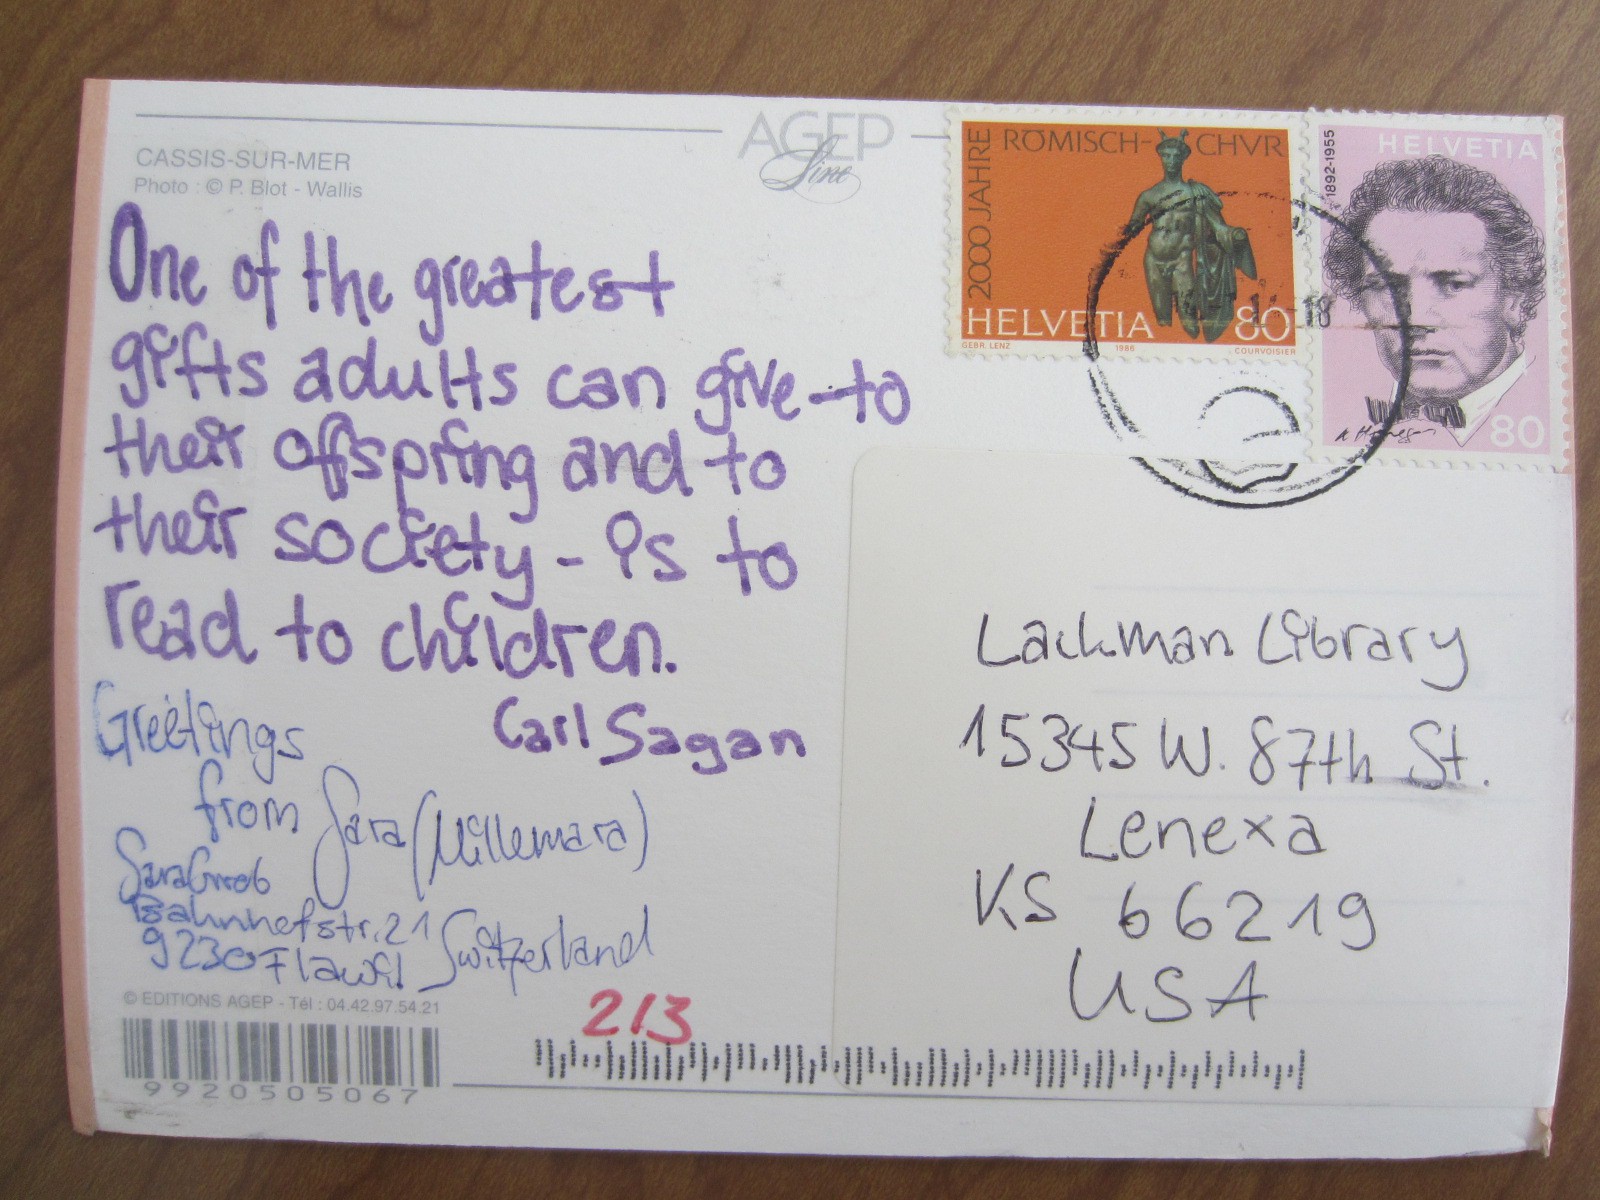 AGEP
Line
CASSIS-SUR-MER
Photo : © P. Blot - Wallis
One of the greatest
gifts adults can give to
their offspring and to
their society - is to
read to children.
Carl Sagan
Greetings
from Sara (Millemara)
Sara Grob
Bahnhofstr. 21
9230 Flawil Switzerland
© EDITIONS AGEP - Tél : 04.42.97.54.21
9920505067
213
2000 JAHRE
RÖMISCH-CHVR
HELVETIA 80
GEBR. LENZ 1986 COURVOISIER
HELVETIA
1892-1955
80
Lackman Library
15345 W. 87th St.
Lenexa
KS 66219
USA